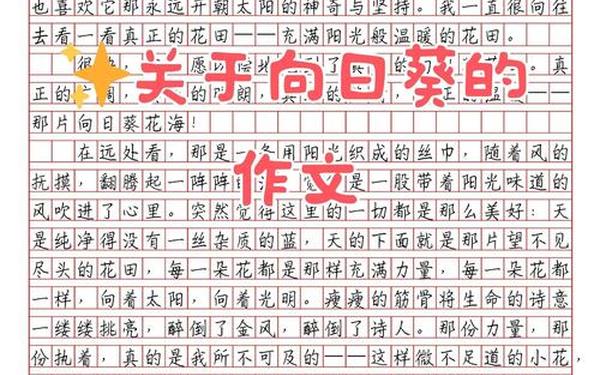 也喜欢它那永远开朝太阳的神奇与坚持。我一直很向往
去看一看真正的花田——充满阳光般温暖的花田。
关于向日葵的
作文
很 愿 地 到了 真
正的 朗, 的 ——
那片向日葵花海!
在远处看,那是一条用阳光织成的丝巾,随着风的
抚摸,翻腾起一阵阵的 是一股带着阳光味道的
风吹进了心里。突然觉得这里的一切都是那么美好:天
是纯净得没有一丝杂质的蓝,天的下面就是那片望不见
尽头的花田,每一朵花都是那样充满力量,每一朵花都
一样,向着太阳,向着光明。瘦瘦的筋骨将生命的诗意
一缕缕挑亮,醉倒了金风,醉倒了诗人。那份力量,那
份执着,真的是我所不可及的——这样微不足道的小花,